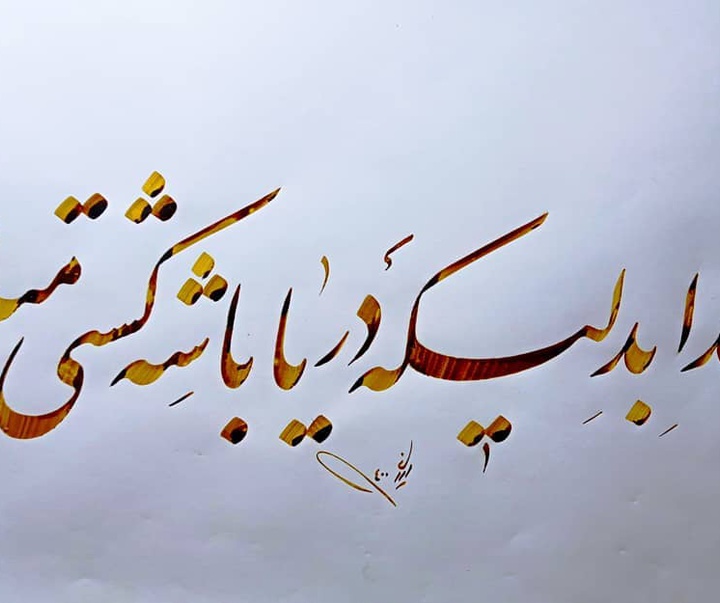 بدلیکه دریا باشه کشتی